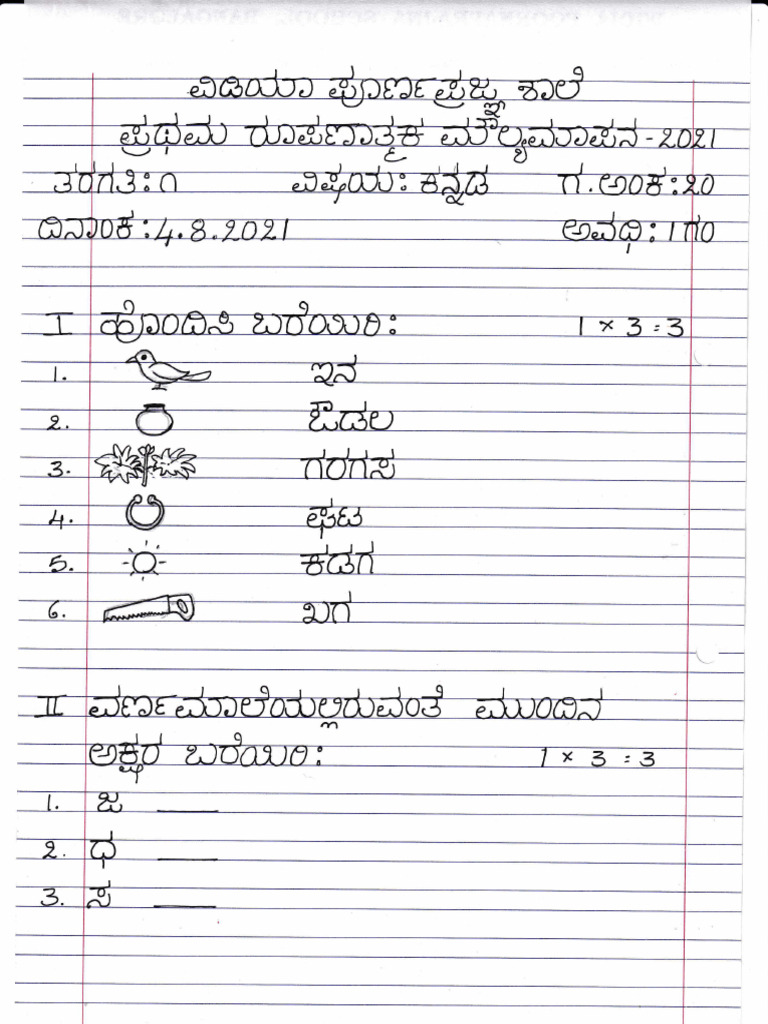 ವಿಡಿಯಾ ಪೂರ್ಣಪ್ರಜ್ಞ ಶಾಲೆ
ಪ್ರಥಮ ರೂಪಣಾತ್ಮಕ ಮೌಲ್ಯಮಾಪನ - 2021
ತರಗತಿ: ೧ ವಿಷಯ: ಕನ್ನಡ ಗ.ಅಂಕ: 20
ದಿನಾಂಕ: 4.8.2021 ಅವಧಿ: 1ಗಂ
I ಹೊಂದಿಸಿ ಬರೆಯಿರಿ: 1 × 3 = 3
1. ಇನ
2. ಔಡಲ
3. ಗರಗಸ
4. ಘಟ
5. ಕಡಗ
6. ಖಗ
II ವರ್ಣಮಾಲೆಯಲ್ಲಿರುವಂತೆ ಮುಂದಿನ
ಅಕ್ಷರ ಬರೆಯಿರಿ: 1 × 3 = 3
1. ಜ ____
2. ಧ ____
3. ಸ ____